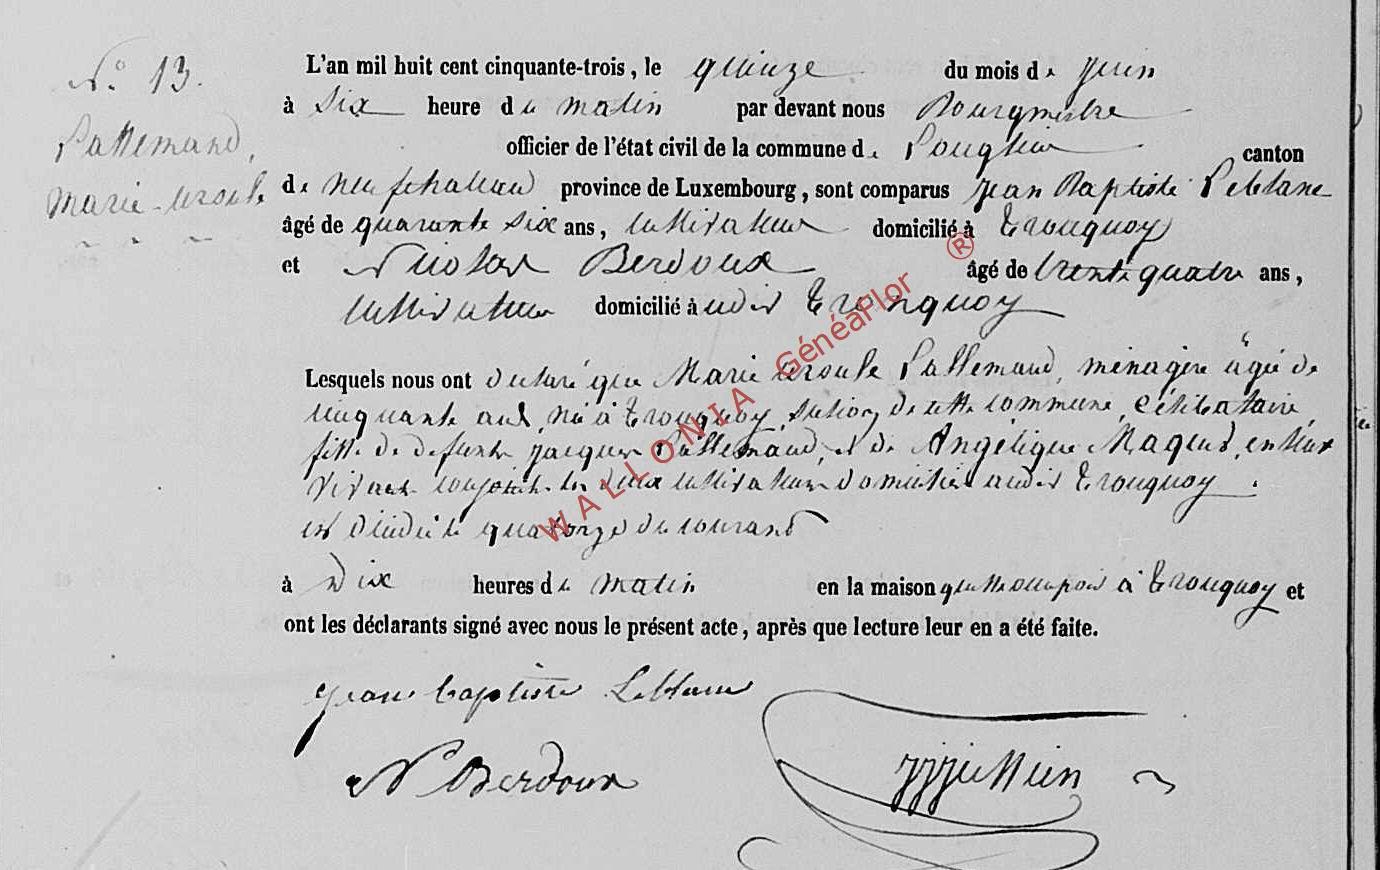 N° 13.
Lallemand,
Marie-Ursule
L'an mil huit cent cinquante-trois, le quinze du mois de Juin
à six heure du matin par devant nous Bourgmestre
officier de l'état civil de la commune de Longlier canton
de neufchateau province de Luxembourg, sont comparus Jean Baptiste Leblanc
âgé de quarante six ans, cultivateur domicilié à Tronquoy
et Nicolas Berdoux âgé de trente quatre ans,
cultivateur domicilié à audit Tronquoy
Lesquels nous ont déclaré que Marie Ursule Lallemand, ménagère âgée de
cinquante ans, née à Tronquoy, section de cette commune, célibataire,
fille de defunts Jacques Lallemand, et de Angélique Maqued, en leur
vivant conjoints les deux cultivateurs domiciliés audit Tronquoy.
est décédée le quatorze du courant
à Dix heures du matin en la maison qu'elle occupoit à Tronquoy et
ont les déclarants signé avec nous le présent acte, après que lecture leur en a été faite.
Jean baptiste Leblanc
N Berdoux
WALLONIA GénéaFlor ®